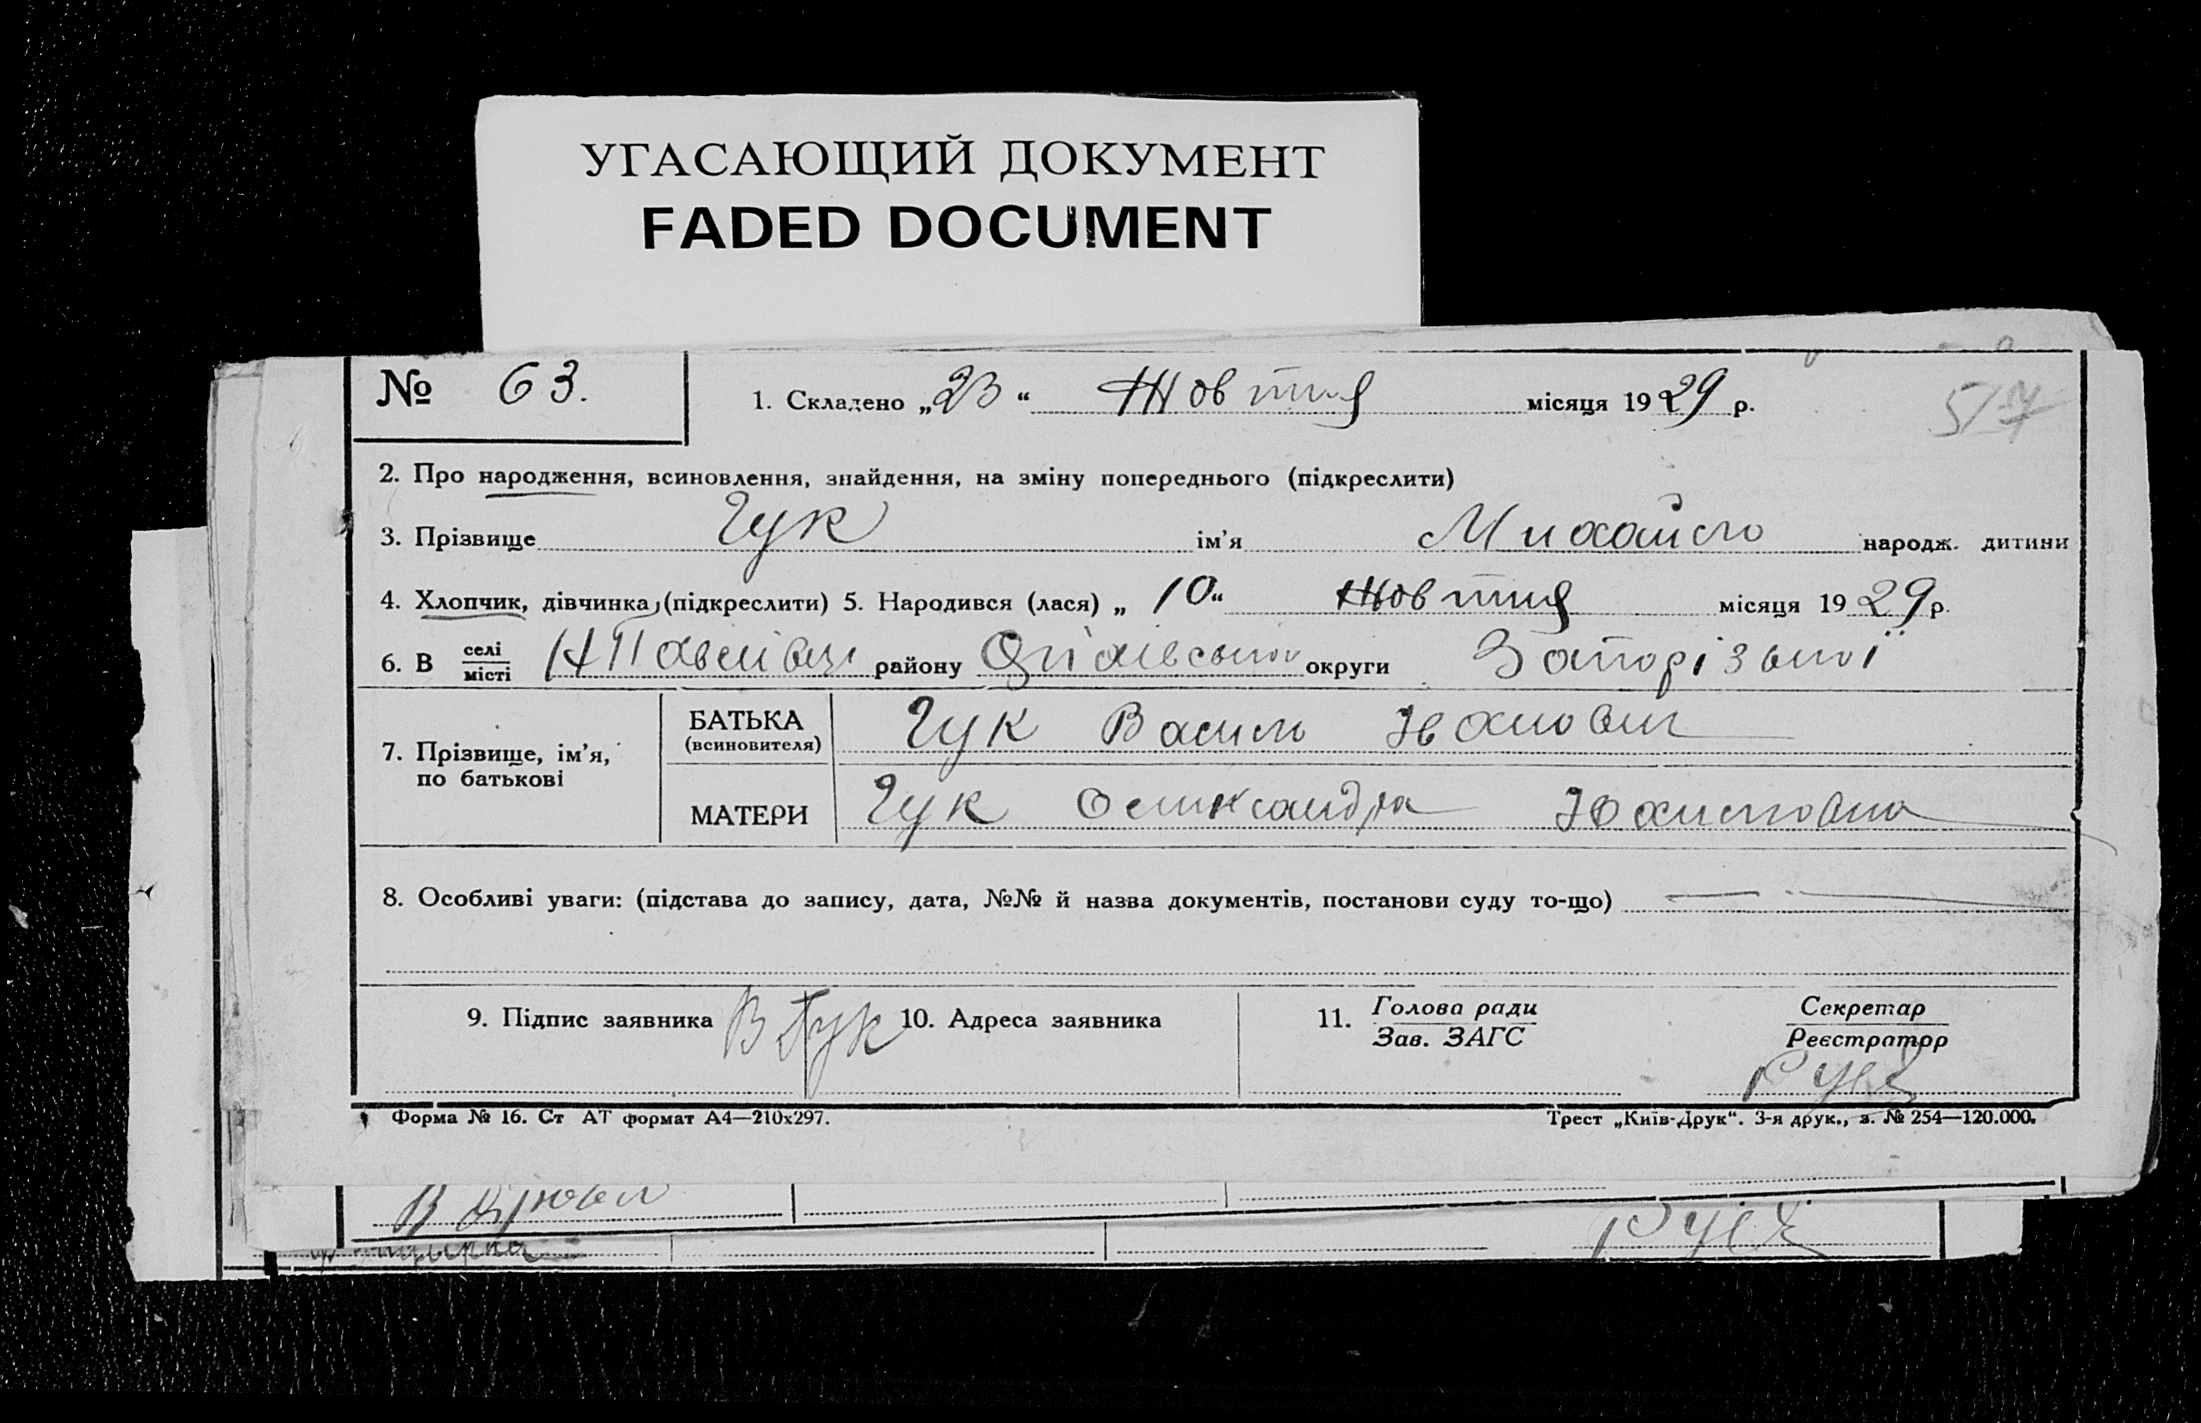 УГАСАЮЩИЙ ДОКУМЕНТ
FADED DOCUMENT
№ 63. 1. Складено „23“ Жовтня місяця 1929 р.
2. Про народження, всиновлення, знайдення, на зміну попереднього (підкреслити)
3. Прізвище Гук ім'я Михайло народж. дитини
4. Хлопчик, дівчинка, (підкреслити) 5. Народився (лася) „10“ Жовтня місяця 1929 р.
6. В селі/місті району округи Запорізької
7. Прізвище, ім'я, по батькові
БАТЬКА (всиновителя) Гук Василь Іванович
МАТЕРИ Гук Олександра
8. Особливі уваги: (підстава до запису, дата, №№ й назва документів, постанови суду то-що)
9. Підпис заявника В Гук 10. Адреса заявника 11. Голова ради Секретар
Зав. ЗАГС Реєстратор
Форма № 16. Ст АТ формат А4—210х297. Трест „Київ-Друк“. 3-я друк., з. № 254—120.000.